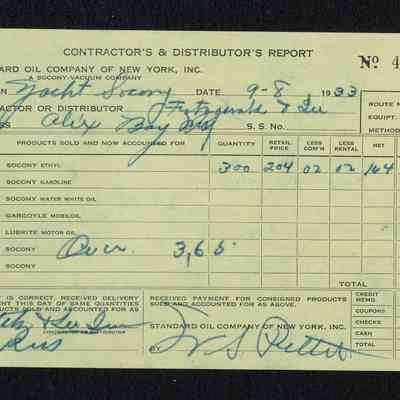 CONTRACTOR'S & DISTRIBUTOR'S REPORT
Nº 4
DARD OIL COMPANY OF NEW YORK, INC.
A SOCONY-VACUUM COMPANY
ON Yacht Socony DATE 9-8 1933
ROUTE N
ACTOR OR DISTRIBUTOR Fitzgerald & Lee
EQUIPT.
SS Alex Bay NY S. S. No.
METHOD
PRODUCTS SOLD AND NOW ACCOUNTED FOR QUANTITY RETAIL PRICE LESS COM'N LESS RENT NET
SOCONY ETHYL 300 204 02 02 164
SOCONY GASOLINE
SOCONY WATER WHITE OIL
GARGOYLE MOBILOIL
LUBRITE MOTOR OIL
SOCONY Over 3,65
SOCONY
TOTAL
IS CORRECT, RECEIVED DELIVERY
ENT THIS DAY OF SAME QUANTITIES
DUCTS SOLD AND ACCOUNTED FOR
RECEIVED PAYMENT FOR CONSIGNED PRODUCTS
SOLD AND ACCOUNTED FOR AS ABOVE.
CREDIT MEMO.
COUPONS
CHECKS
CASH
TOTAL
STANDARD OIL COMPANY OF NEW YORK, INC.
CONTRACTOR OR DISTRIBUTOR
BY